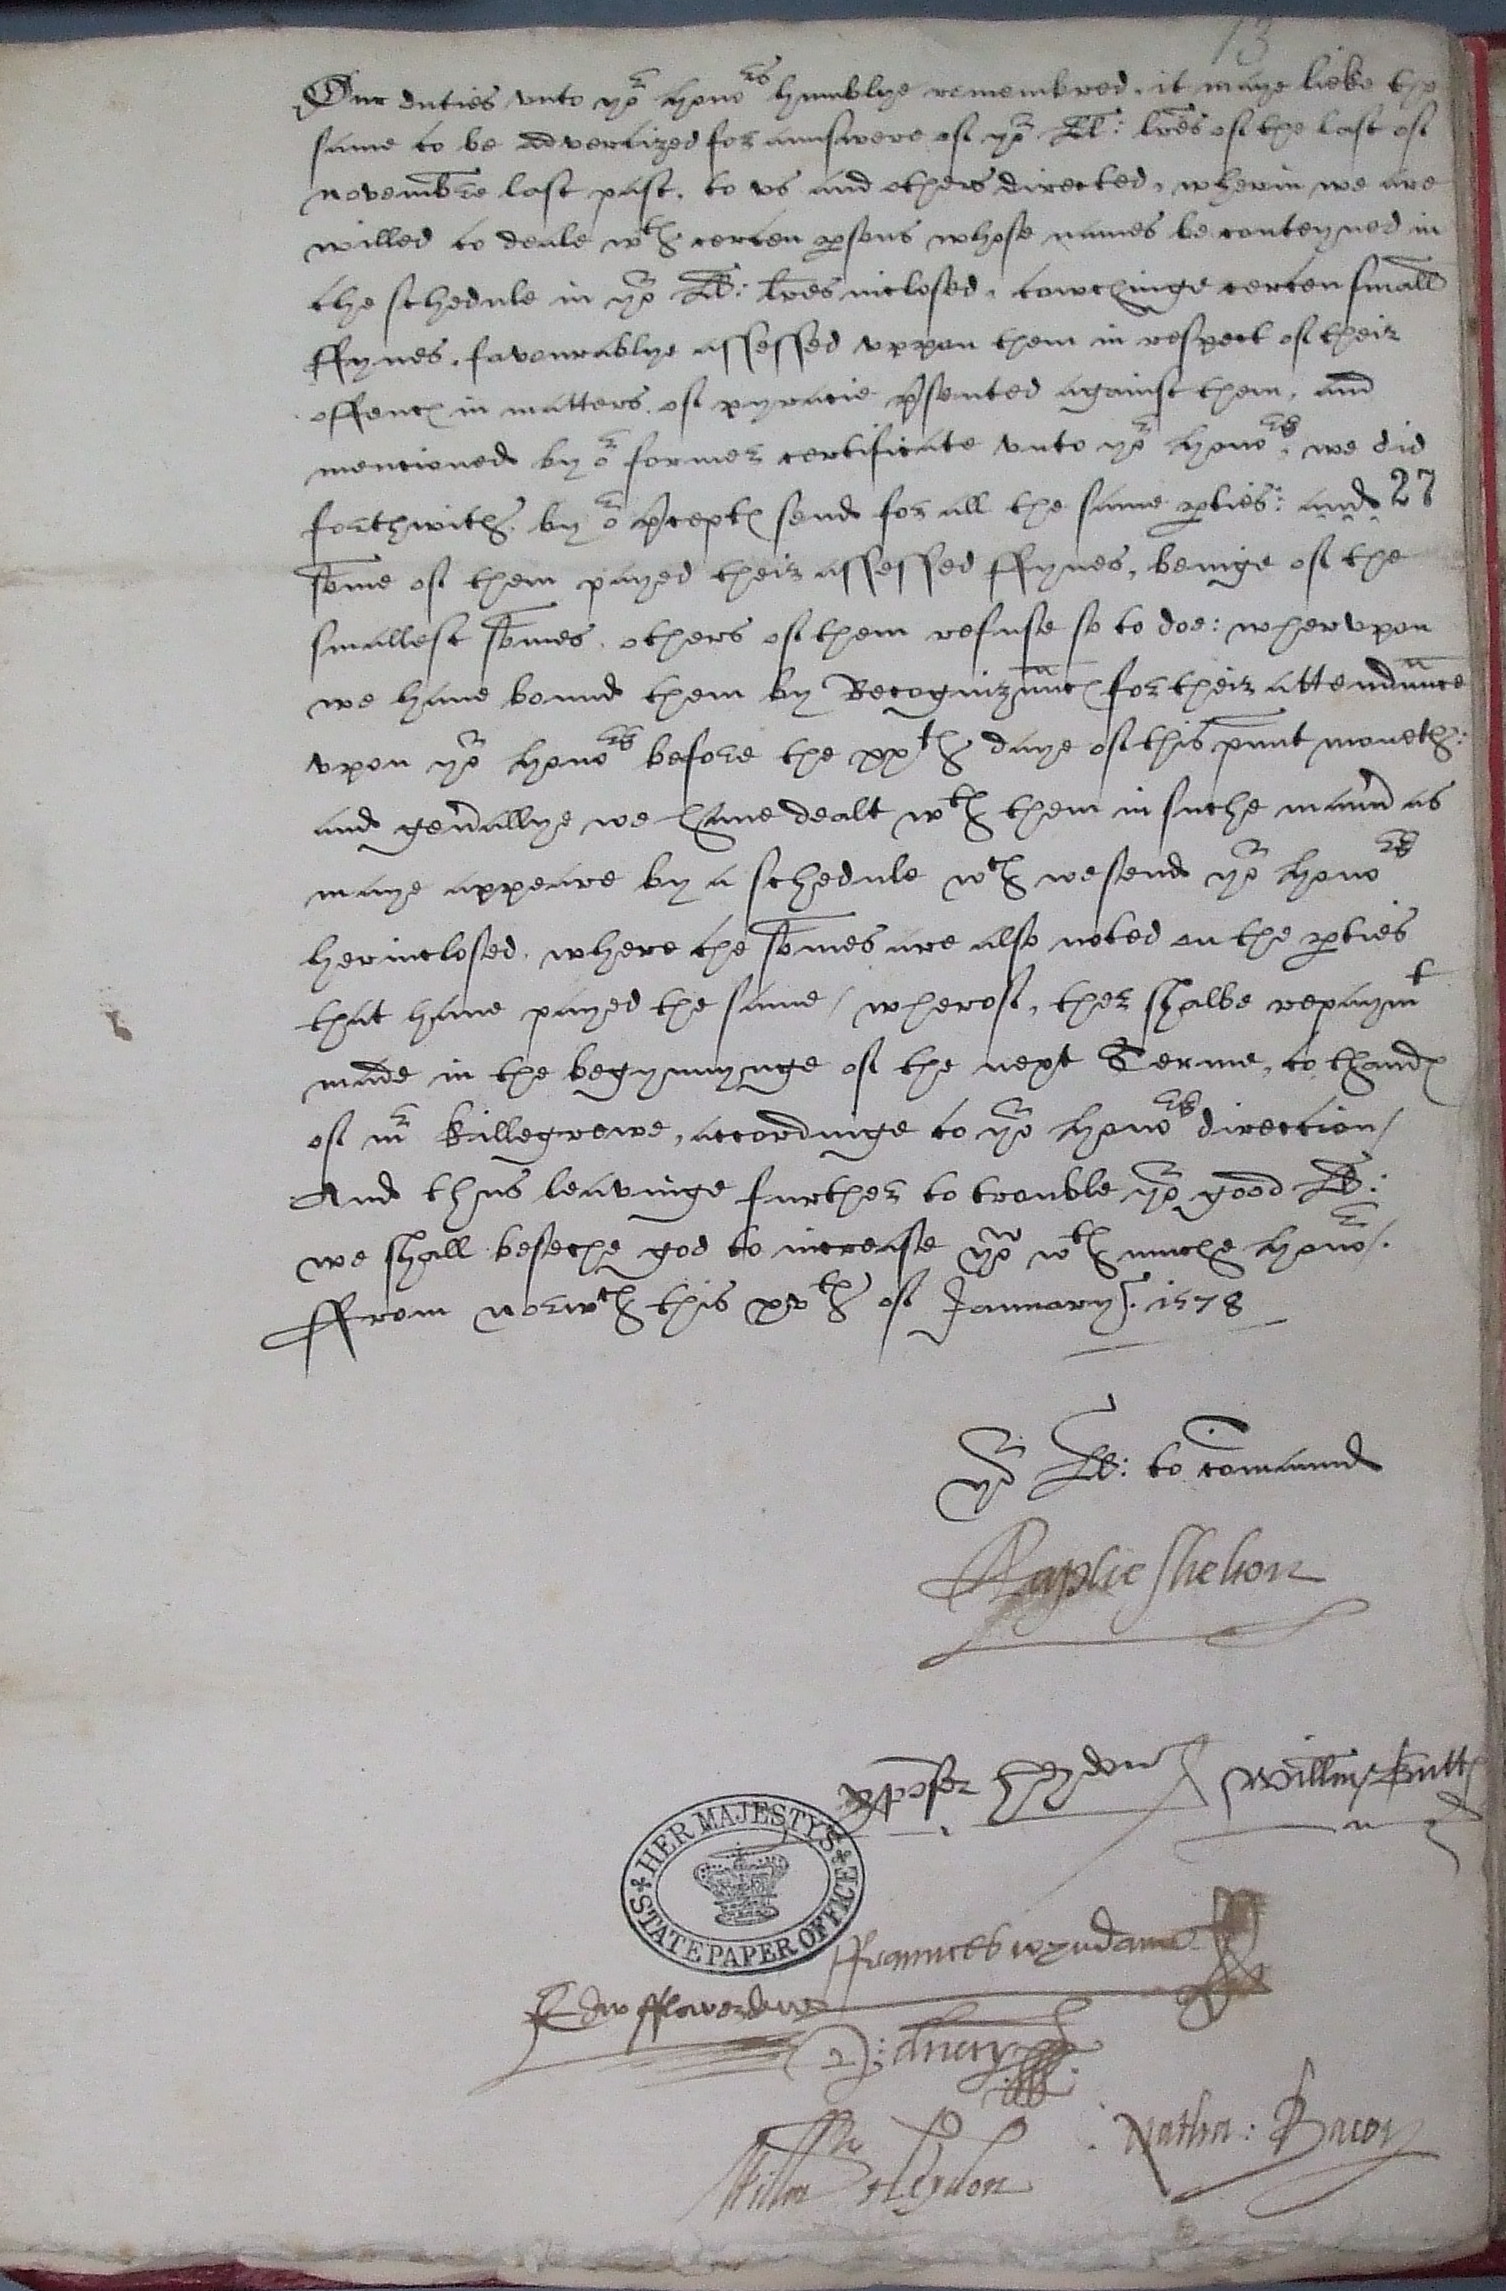 13
Our duties vnto yor honors humblye remembred, it maye lieke the
same to be advertized for aunswere of yor LL: lres of the last of
novembre last past, to vs and others directed, wherin we are
willed to deale wth certen psons whose names be conteyned in
the schedule in yor LL: lres inclosed, towchinge certen small
ffynes, favourablye assessed vppon them in respect of their
offencs in matters of pyracie psented against them, and
mencioned by or former certificate vnto yor honors, we did
forthwith by or pcepts send for all the same pties: and 27
some of them payed their assessed ffynes, beinge of the
smallest somes, others of them refuse so to doe: whervpon
we haue bound them by Recognizauncs for their attendaunce
vpon yor honors before the xxth daye of this pnnt moneth:
and genallye we haue dealt wth them in suche mann as
maye appeare by a schedule wch we send yor honors
herinclosed, where the somes are also noted on the pties
that haue payed the same / wherof, ther shalbe repaymt
made in the begynnynge of the next Terme, to thands
of mr Killegrewe, accordinge to yor honors direction /
And thus leavinge further to trouble yor good LL:
we shall beseche god to increase yow wth muche honor /.
ffrom norwch this xvth of January. 1578
yor LL: to comaund
Raphe Shelton
xpofer heydon Willm Butts
HER MAJESTYS STATE PAPER OFFICE
ffraunces wyndam
Edw fflowerdewe
D: drury
Willm Heydon
Natha: Bacon